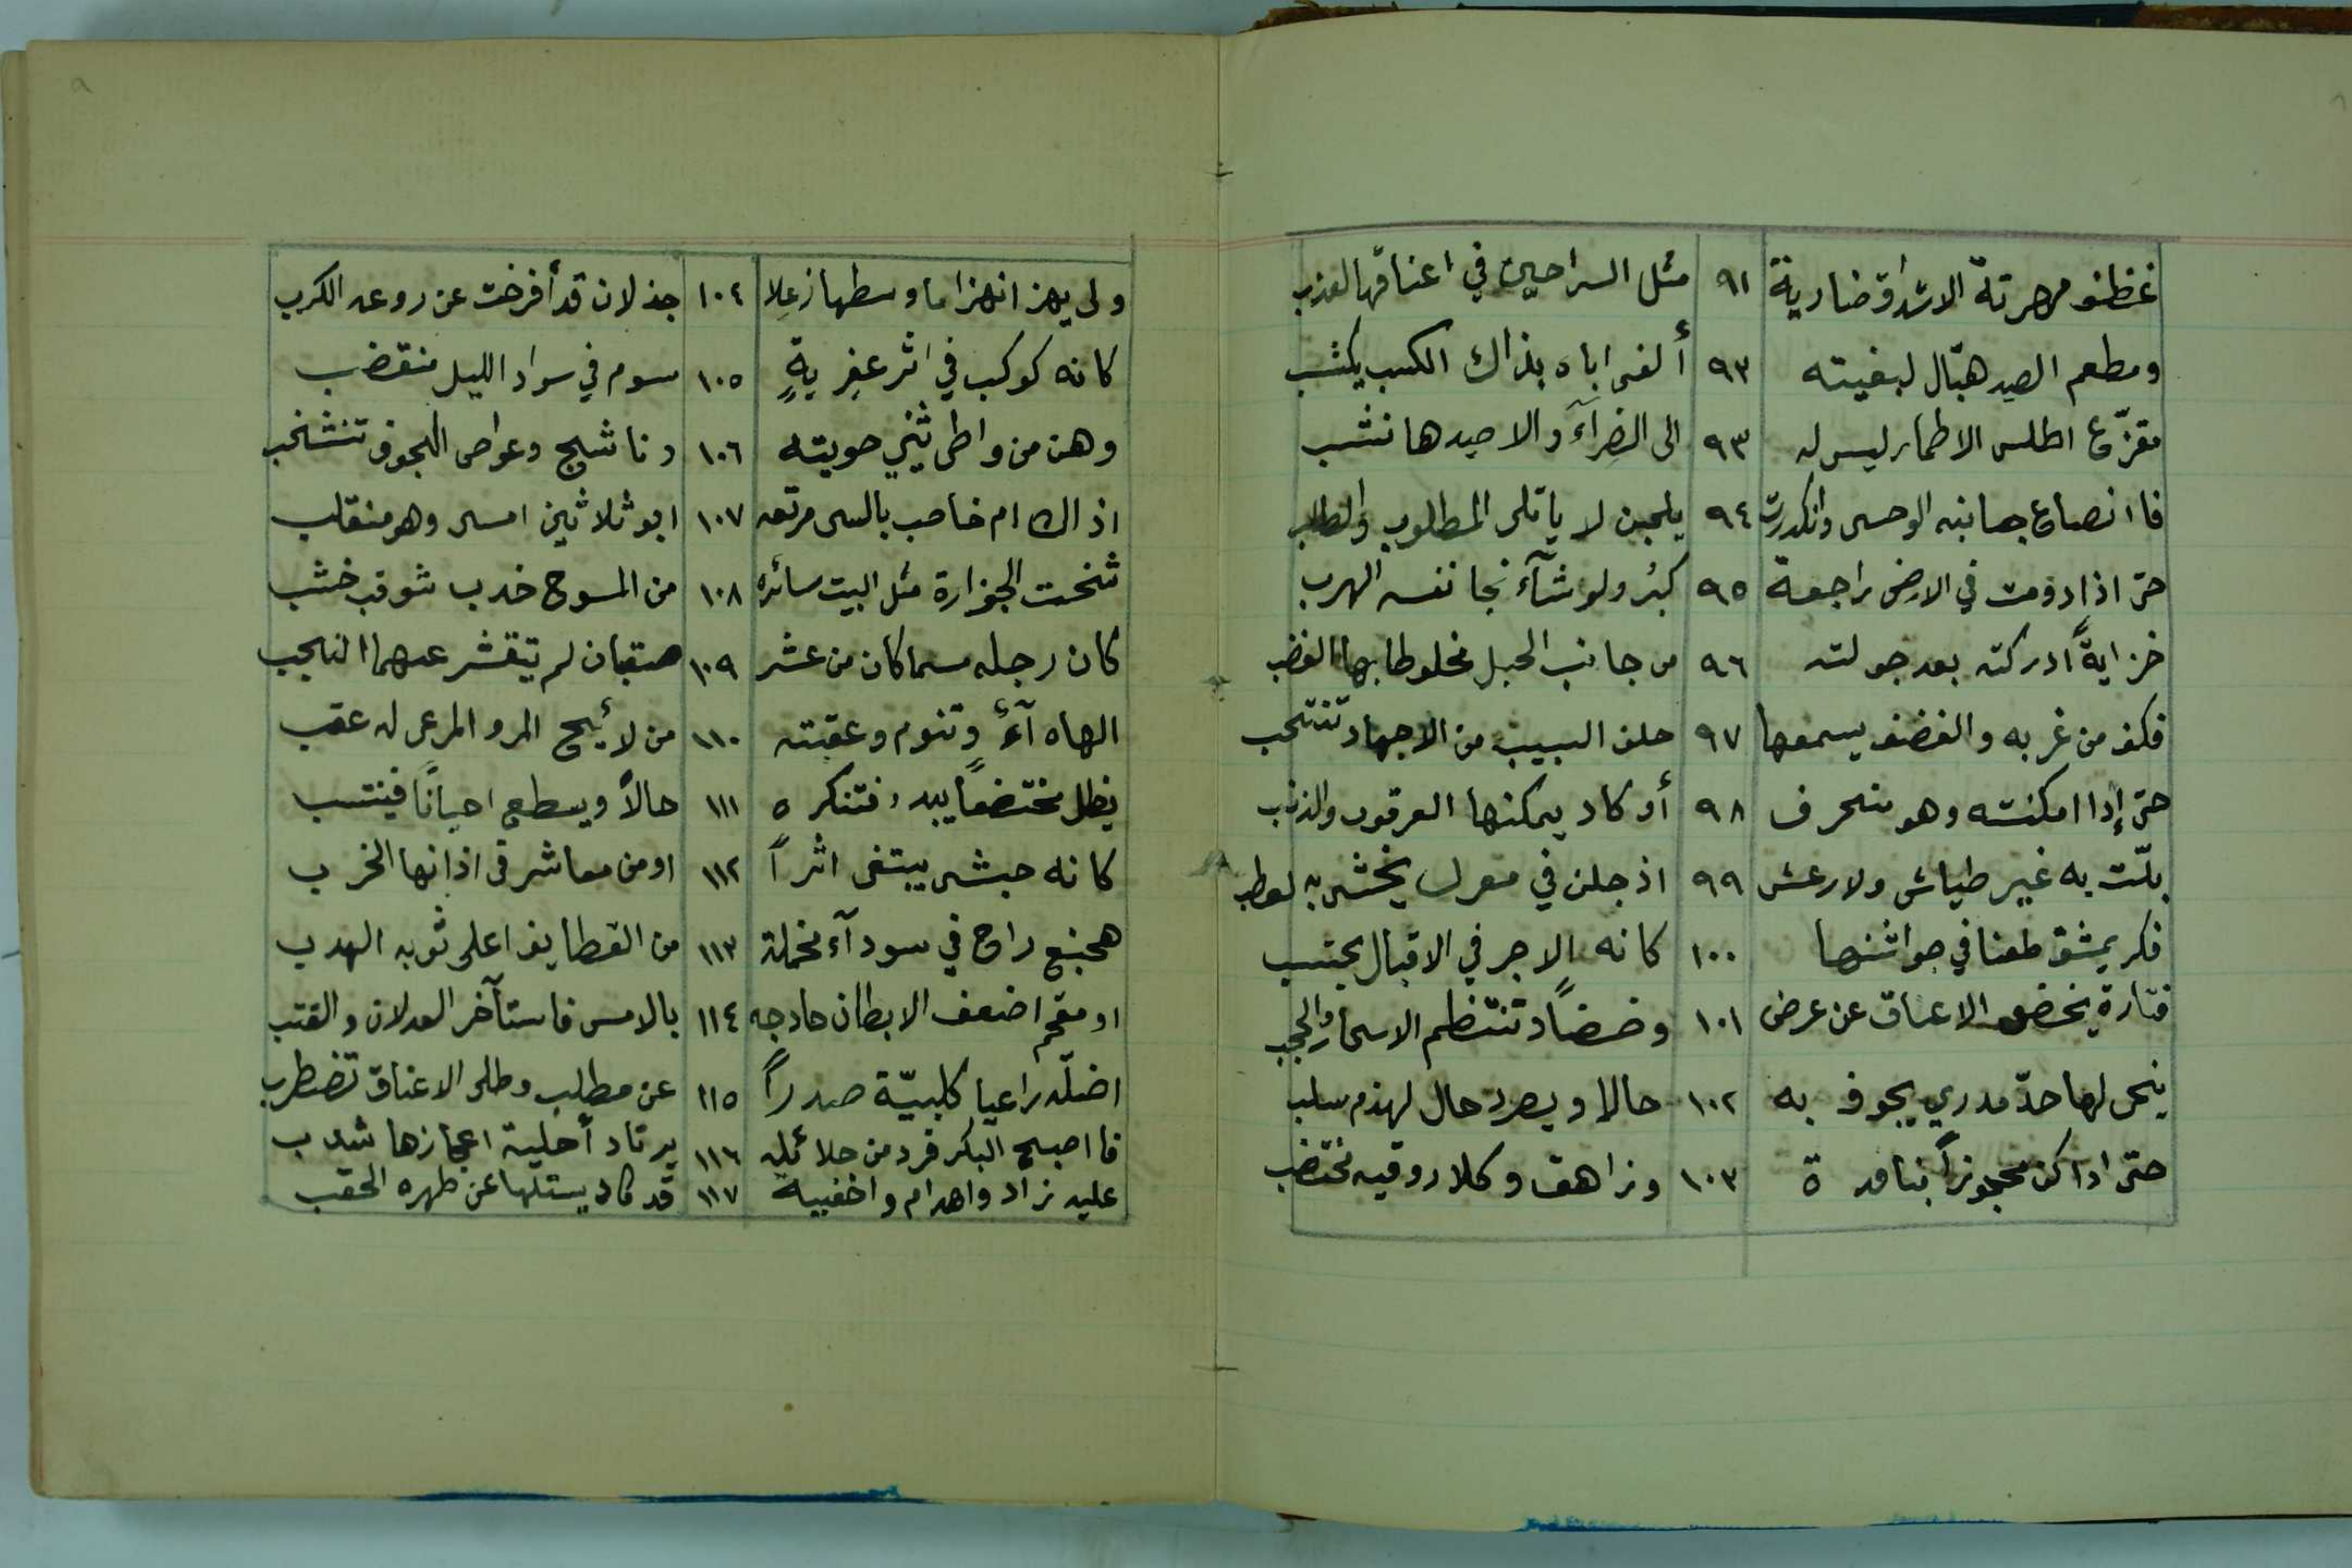 غظنف مهرتة الاشداق ضارية ٩١ مثل السراحين في اعناقها العذب
ومطعم الصيد هبّال لبغيته ٩٣ ألفى اباه بذاك الكسب يكتسب
مقزّع اطلس الاطمار ليس له ٩٣ الى الضِرآءَ والا صيدها نشب
فاانصاع جانبه الوحسى وانكدرت ٩٤ يلحبن لا ياتلى المطلوب والطلب
حتى اذا دومت في الارض راجعة ٩٥ كبرُ ولو شآء نجا نفسه الهرب
خزايةً ادركته بعد جولته ٩٦ من جانب الحبل مخلوطا بها الغضب
فكف من غربه والغضف يسمعها ٩٧ خلف السبيب من الاجهاد تنتحب
حتى إذا امكنته وهو منحرف ٩٨ أو كاد يمكنها العرقوب والذنب
بلّت به غير طياش ولا رعش ٩٩ اذ جلن في معرك يخشى به لعطب
فكر يمشق طعنا في جواشنها ١٠٠ كانه الاجر في الاقبال يحتسب
فتارة يخض الاعناق عن عرض ١٠١ وخضاً وتنتظم الاسحار والحجب
ينحى لها حدّ مدري يجوف به ١٠٢ حالا ويصرد حال لهذم سلب
حتى اذا كن محجوزاً بنافذ ة ١٠٣ وزاهق وكلا روقيه مختضب
ولى يهز انهزاما وسطها زعِلا ١٠٤ جذلان قد أفرخت عن روعه الكرب
كانه كوكب في اثر عفِريةٍ ١٠٥ مسوم في سواد الليل منقضب
وهن من واطى ثنيي حويته ١٠٦ وناشج وعواصى الجوف تنشخب
اذاك ام خاضب بالسى مرتعه ١٠٧ ابو ثلاثين امسى وهو منقلب
شخت الجزارة مثل البيت سائره ١٠٨ من المسوح خدب شوقب خشب
كان رجله مسماكان من عشر ١٠٩ صقبان لم يتقشر عنهما النجب
الهاه آءُ وتنوم وعقبته ١١٠ من لائح المرو المرعى له عقب
يظل مختضعاً يبدو فتنكر ه ١١١ حالاً ويسطع احياناً فينتسب
كانه حبشى يبتغى اثراً ١١٢ او من معاشر فى اذانها الخر ب
هجنع راح في سودآء مخملة ١١٣ من القطايف اعلى ثوبه الهدب
او مقحم اضعف الابطان حادجه ١١٤ بالامس فاستآخر العدلان والقتب
اضلّه راعيا كلبيّة صدراً ١١٥ عن مطلب وطلى الاعناق تضطرب
فااصبح البكر فرد من حلائله ١١٦ يرتاد أحلية اعجازها شذب
عليه زاد واهدام واخفيية ١١٧ قد كاد يستلها عن ظهره الحقب